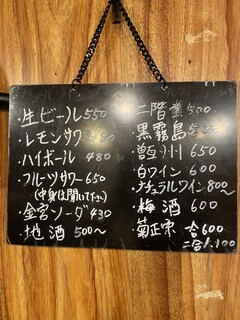 ・生ビール 550
・レモンサワー 450
・ハイボール 480
・フルーツサワー 650
(中身は聞いて下さい)
・金宮ソーダ 430
・地酒 500〜
・二階堂 500
・黒霧島
650
・白ワイン 600
・ナチュラルワイン 800〜
・梅酒 600
・菊正宗 一合600
二合1,100